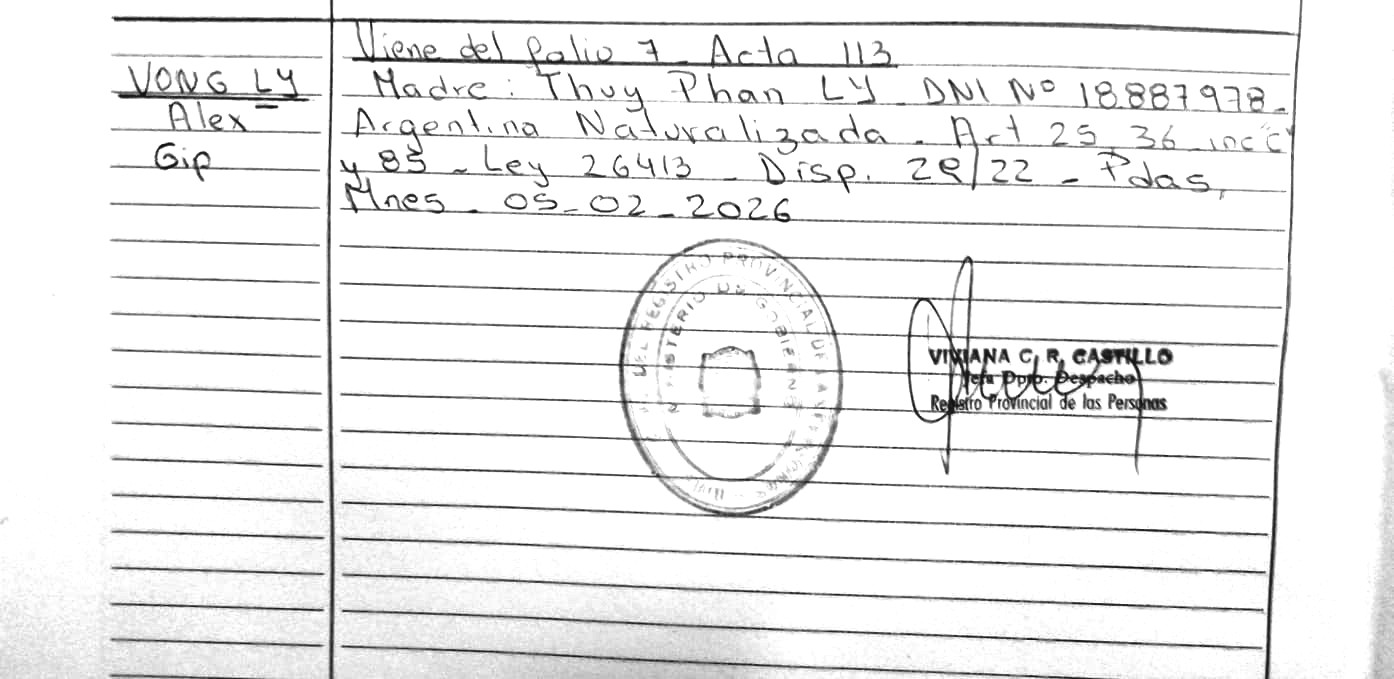 Viene del folio 7_ Acta 113
VONG LY
Alex
Gip
Madre: Thuy Phan LY_ DNI Nº 18.887.978_
Argentina Naturalizada_ Art 25, 36_inc "c"
y 85_ Ley 26413_ Disp. 28/22_ Pdas,
Mnes_ 05_02_2026
REGISTRO PROVINCIAL DE LAS PERSONAS
MINISTERIO DE GOBIERNO
VIVIANA C. R. CASTILLO
Jefa Dpto. Despacho
Registro Provincial de las Personas